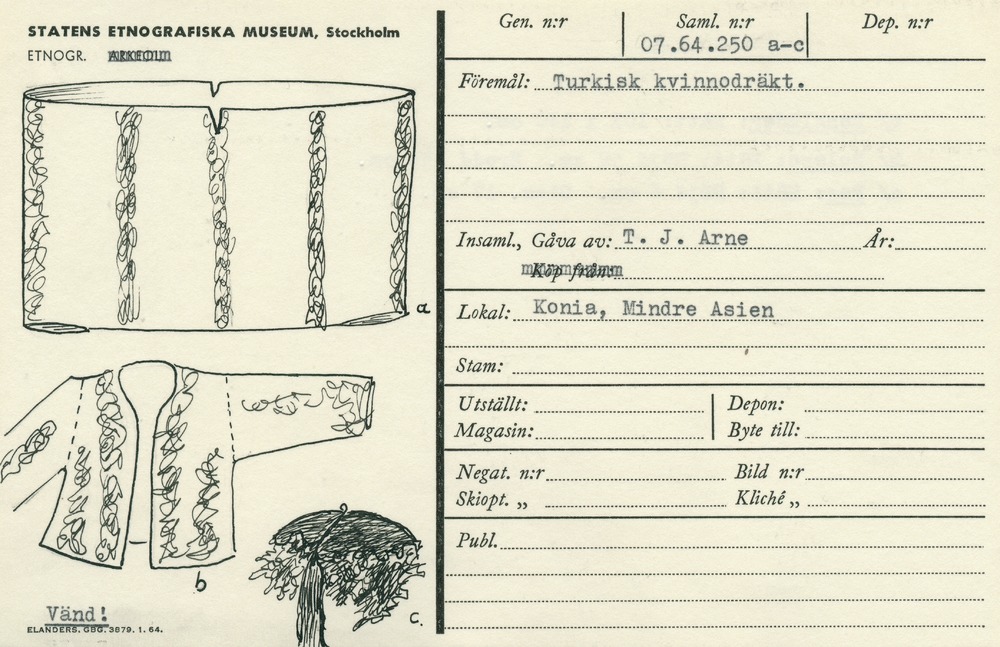 STATENS ETNOGRAFISKA MUSEUM, Stockholm
ETNOGR. ARKEOLL
a
b
c.
Vänd!
ELANDERS. GBG. 3879. 1. 64.
Gen. n:r Saml. n:r Dep. n:r
07.64.250 a-c
Föremål: Turkisk kvinnodräkt.
Insaml., Gåva av: T. J. Arne År:
Köp från:
Lokal: Konia, Mindre Asien
Stam:
Utställt: Depon:
Magasin: Byte till:
Negat. n:r Bild n:r
Skiopt. „ Kliché „
Publ.